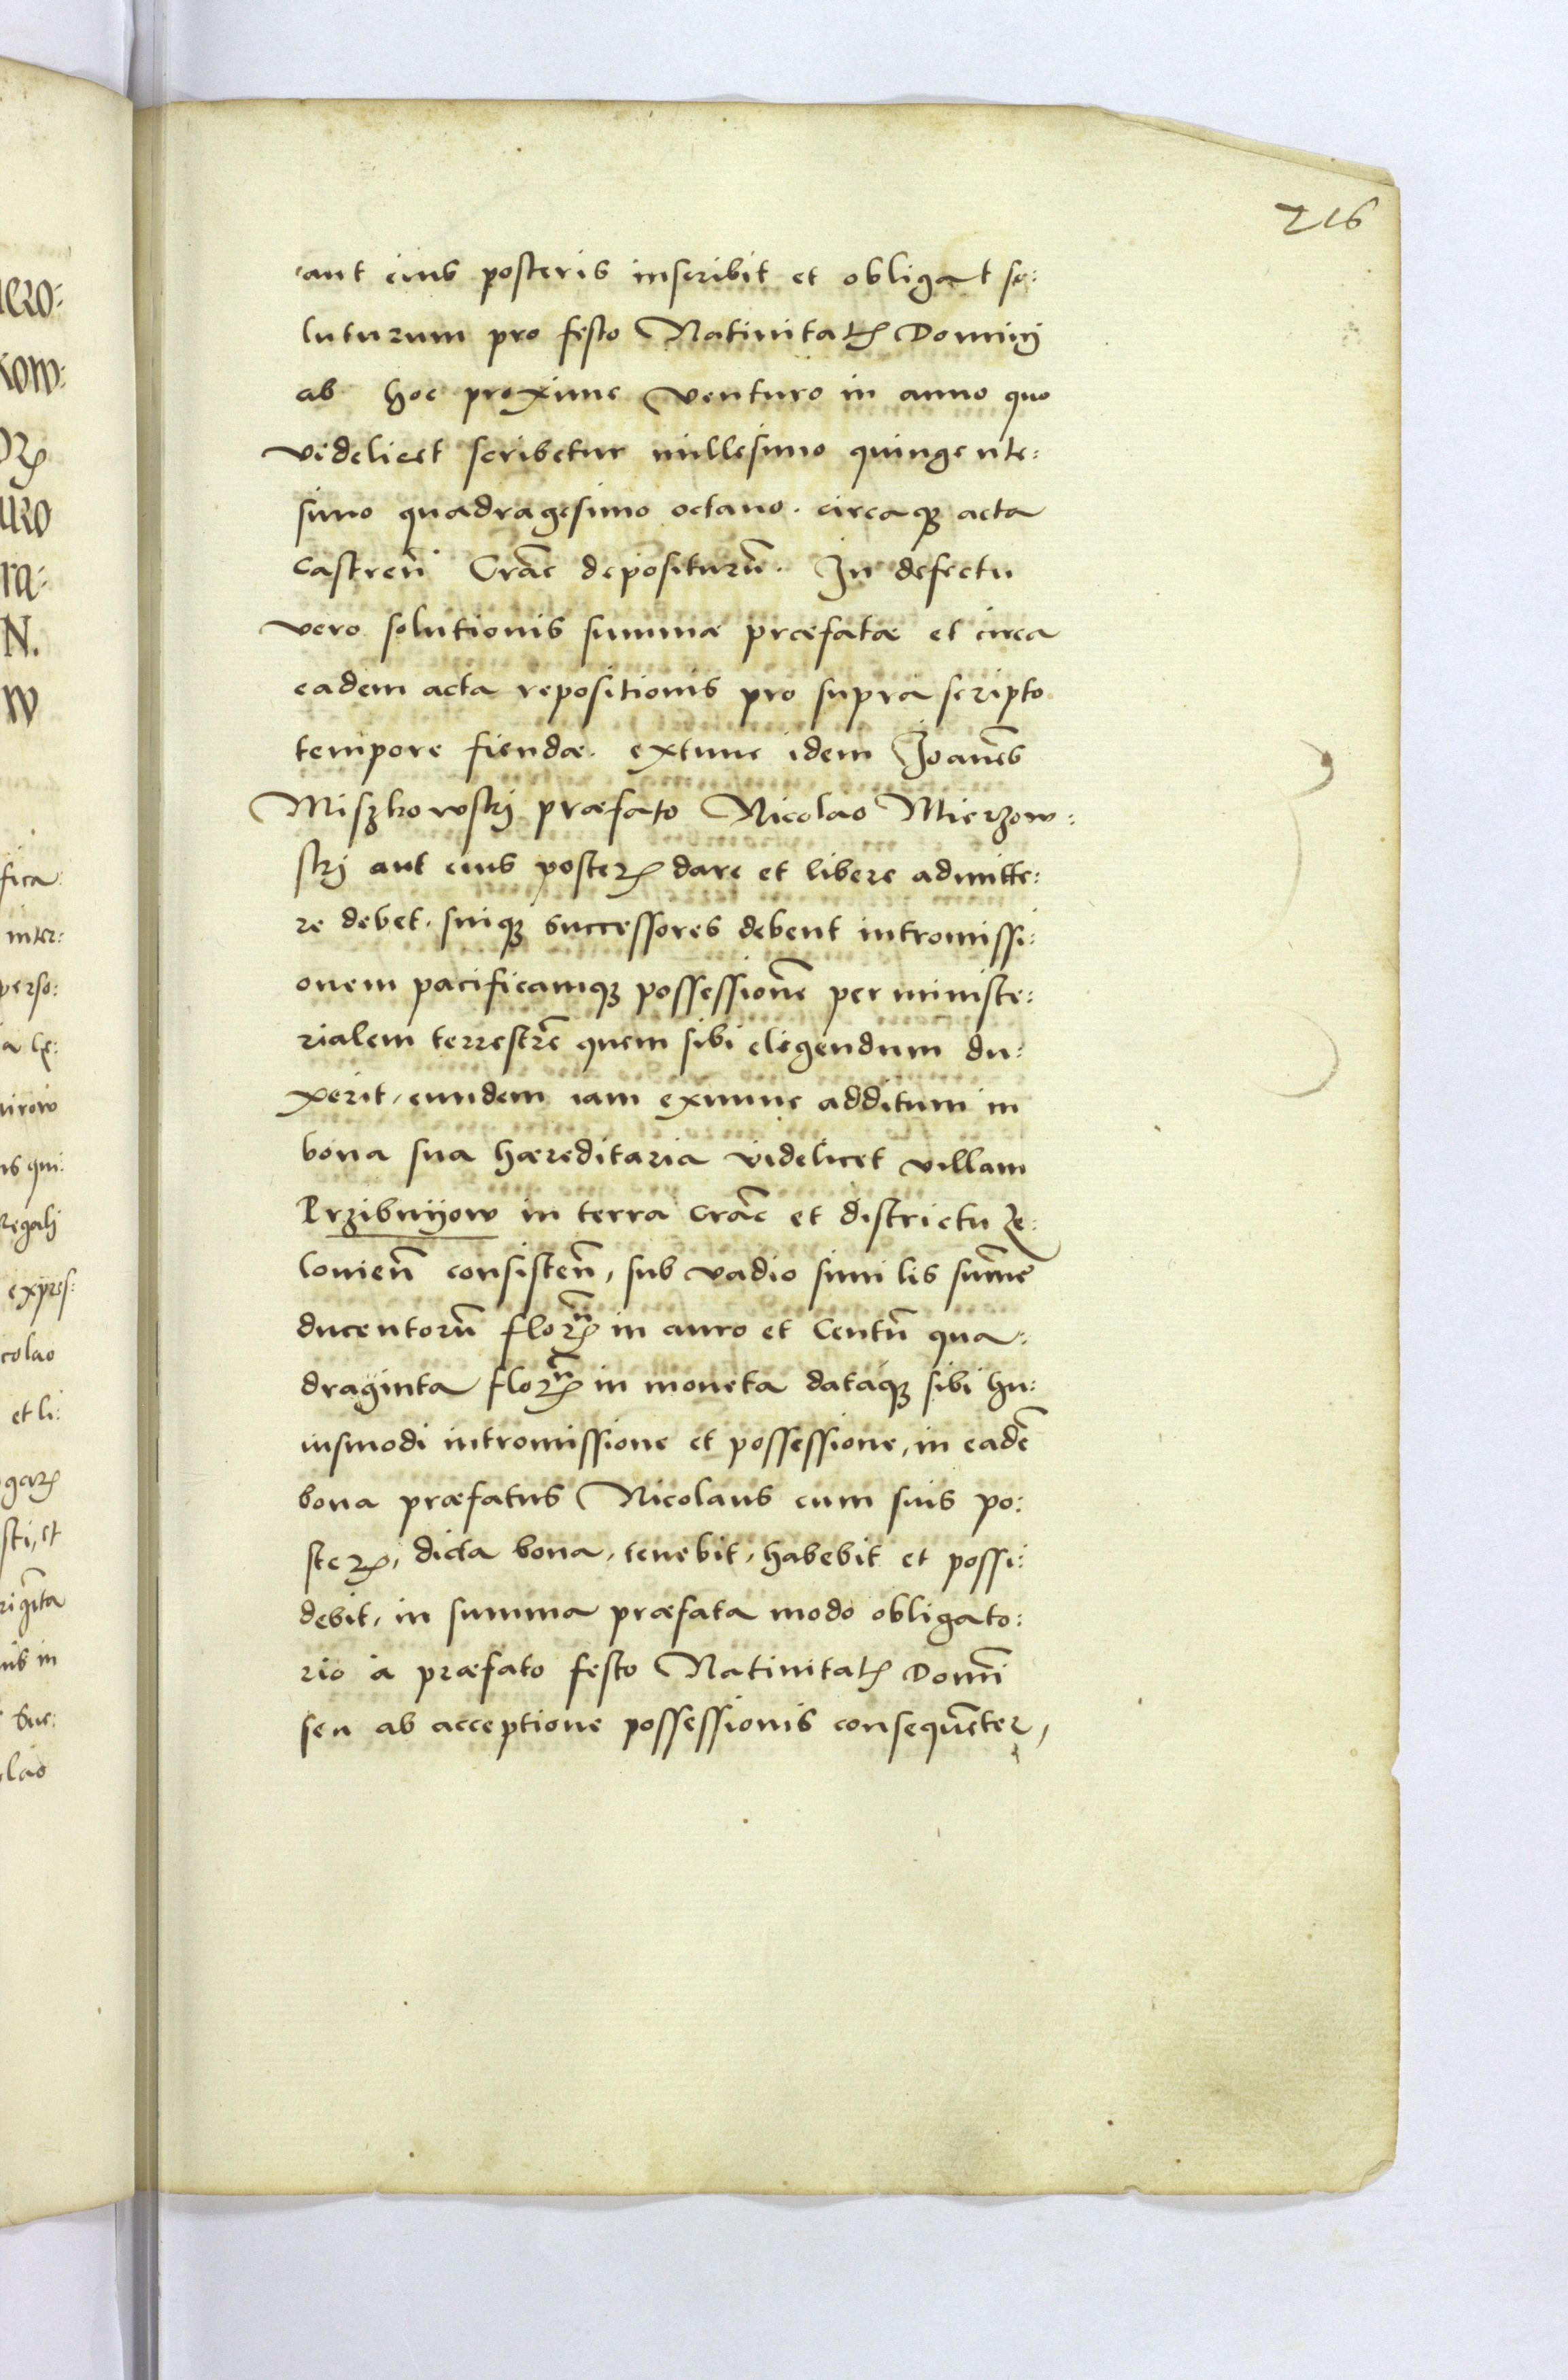 216
aut eius posteris inscribit et obligat so:
luturum pro festo Natiuitatꝭ Dominj
ab hoc proxime venturo in anno quo
videlicet scribetur millesimo quingente:
simo quadragesimo octauo. circaqꝫ acta
castren̄ Crāc depositurū. In defectu
vero solutionis summæ præfatæ et circa
eadem acta repositionis pro supra scripto
tempore fiendæ. extunc idem Joanēs
Miszkowskj præfato Nicolao Mierzow:
skj aut eius posterꝭ dare et libere admitte:
re debet. suiqꝫ successores debent intromissi:
onem pacificamqꝫ possessionē per ministe:
rialem terrestrē quem sibi eligendum du:
xerit, eundem iam exnunc additum in
bona sua hæreditaria videlicet villam
Przibnijow in terra crāc et districtu Ze:
louien̄ consisten̄, sub vadio similis sum̄e
ducentorū florꝭn̄ in auro et Centū qua:
draginta florꝭn̄ in moneta dataqꝫ sibi hu:
iusmodi intromissione et possessione, in eadē
bona præfatus Nicolaus cum suis po:
sterꝭ, dicta bona, tenebit, habebit et possi:
debit, in summa præfata modo obligato:
rio à præfato festo Natiuitatꝭ Domī
seu ab acceptione possessionis consequēter,